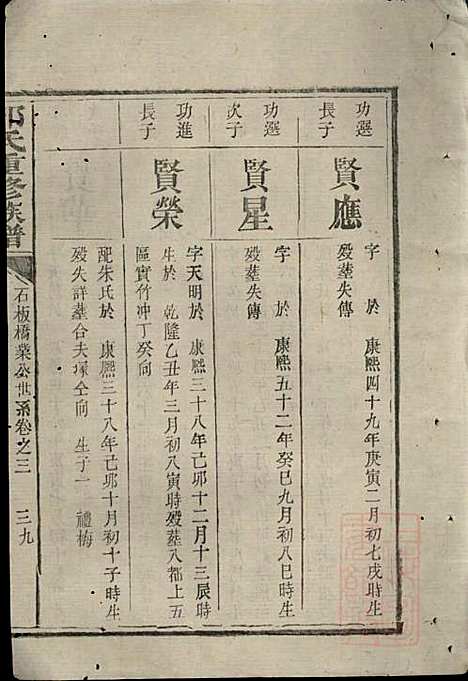 功選
長子
賢應
字 於 康熙四十九年庚寅二月初七戌時生
歿塟失傳
功選
次子
賢星
字 於 康熙五十二年癸巳九月初八巳時生
歿塟失傳
功進
長子
賢榮
字天明於 康熙三十八年己卯十二月十三辰時
生於 乾隆乙丑年三月初八寅時歿塟八都上五
區實竹冲丁癸向
配朱氏於 康熙三十八年己卯十月初十子時生
歿失詳塟合夫塚仝向 生子一 禮梅
氏重修族譜
石板橋業公世系卷之三 三九